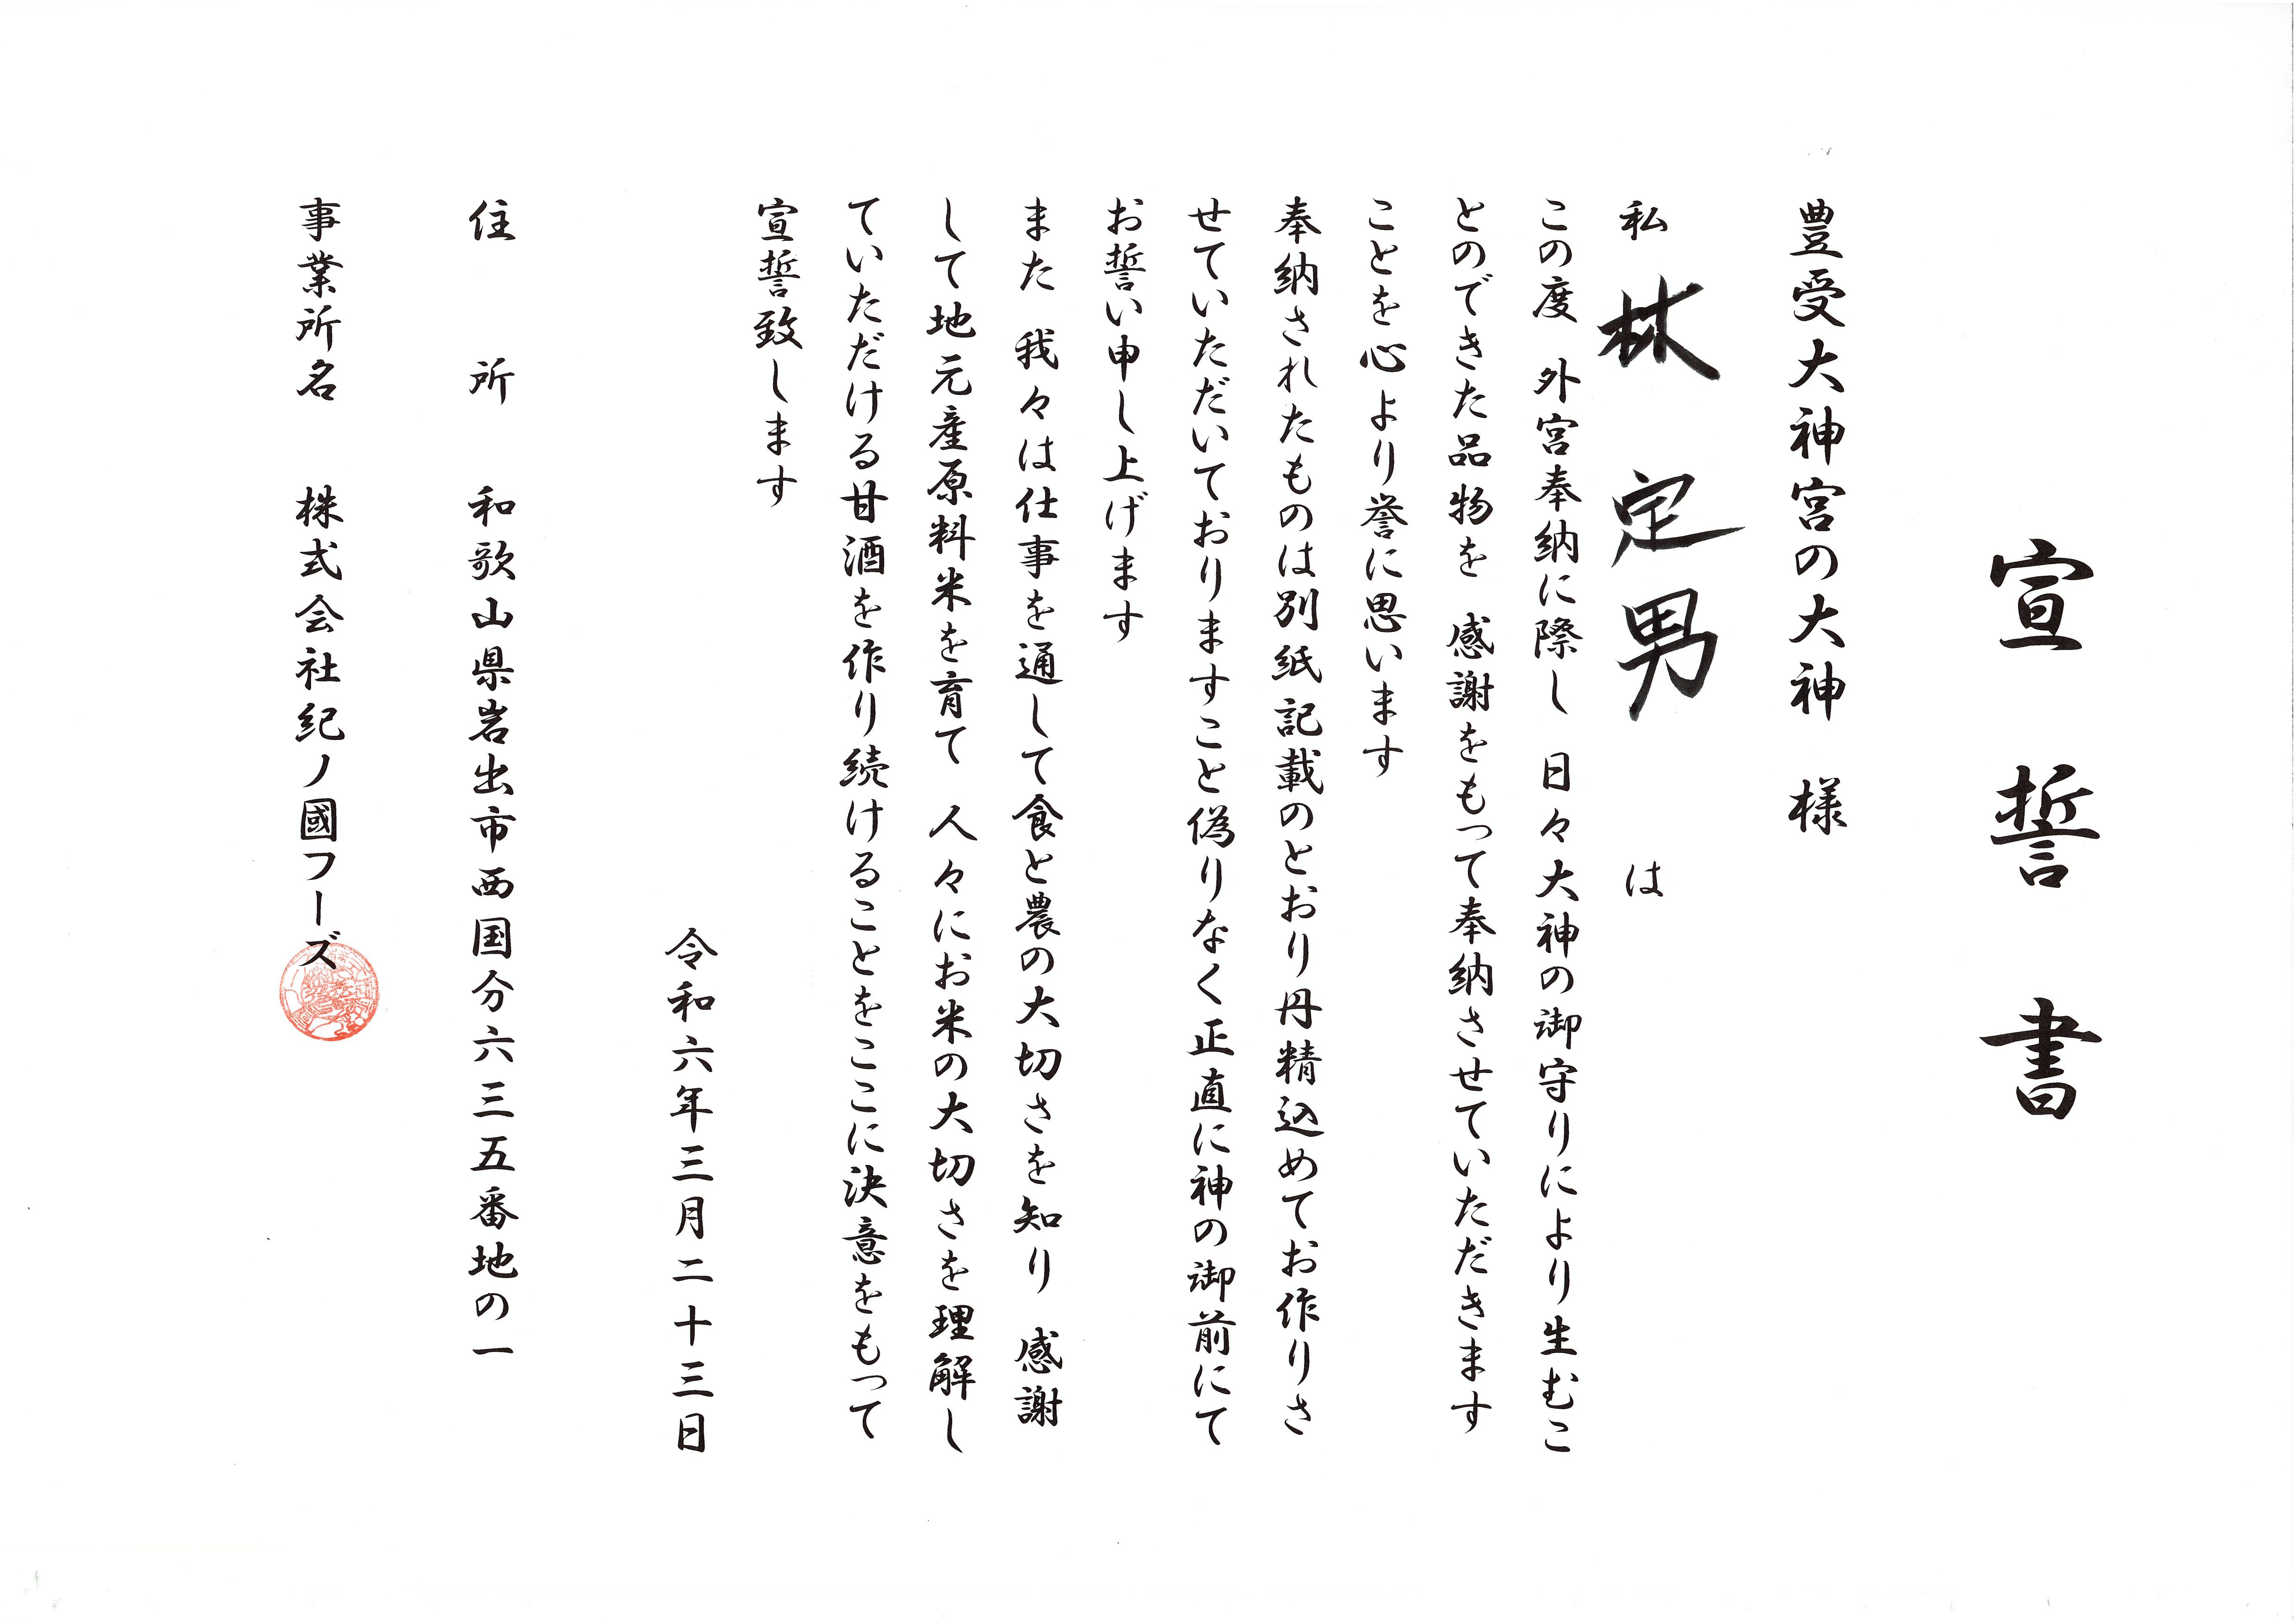 宣誓書
豊受大神宮の大神　様
私　林　定男　は
この度　外宮奉納に際し　日々大神の御守りにより生むこ
とのできた品物を　感謝をもって奉納させていただきます
ことを心より誉に思います
奉納されたものは別紙記載のとおり丹精込めてお作りさ
せていただいておりますこと偽りなく正直に神の御前にて
お誓い申し上げます
また　我々は仕事を通して食と農の大切さを知り　感謝
して地元産原料米を育て　人々にお米の大切さを理解し
ていただける甘酒を作り続けることをここに決意をもって
宣誓致します
令和六年三月二十三日
住　所　和歌山県岩出市西国分六三五番地の一
事業所名　株式会社紀ノ國フーズ